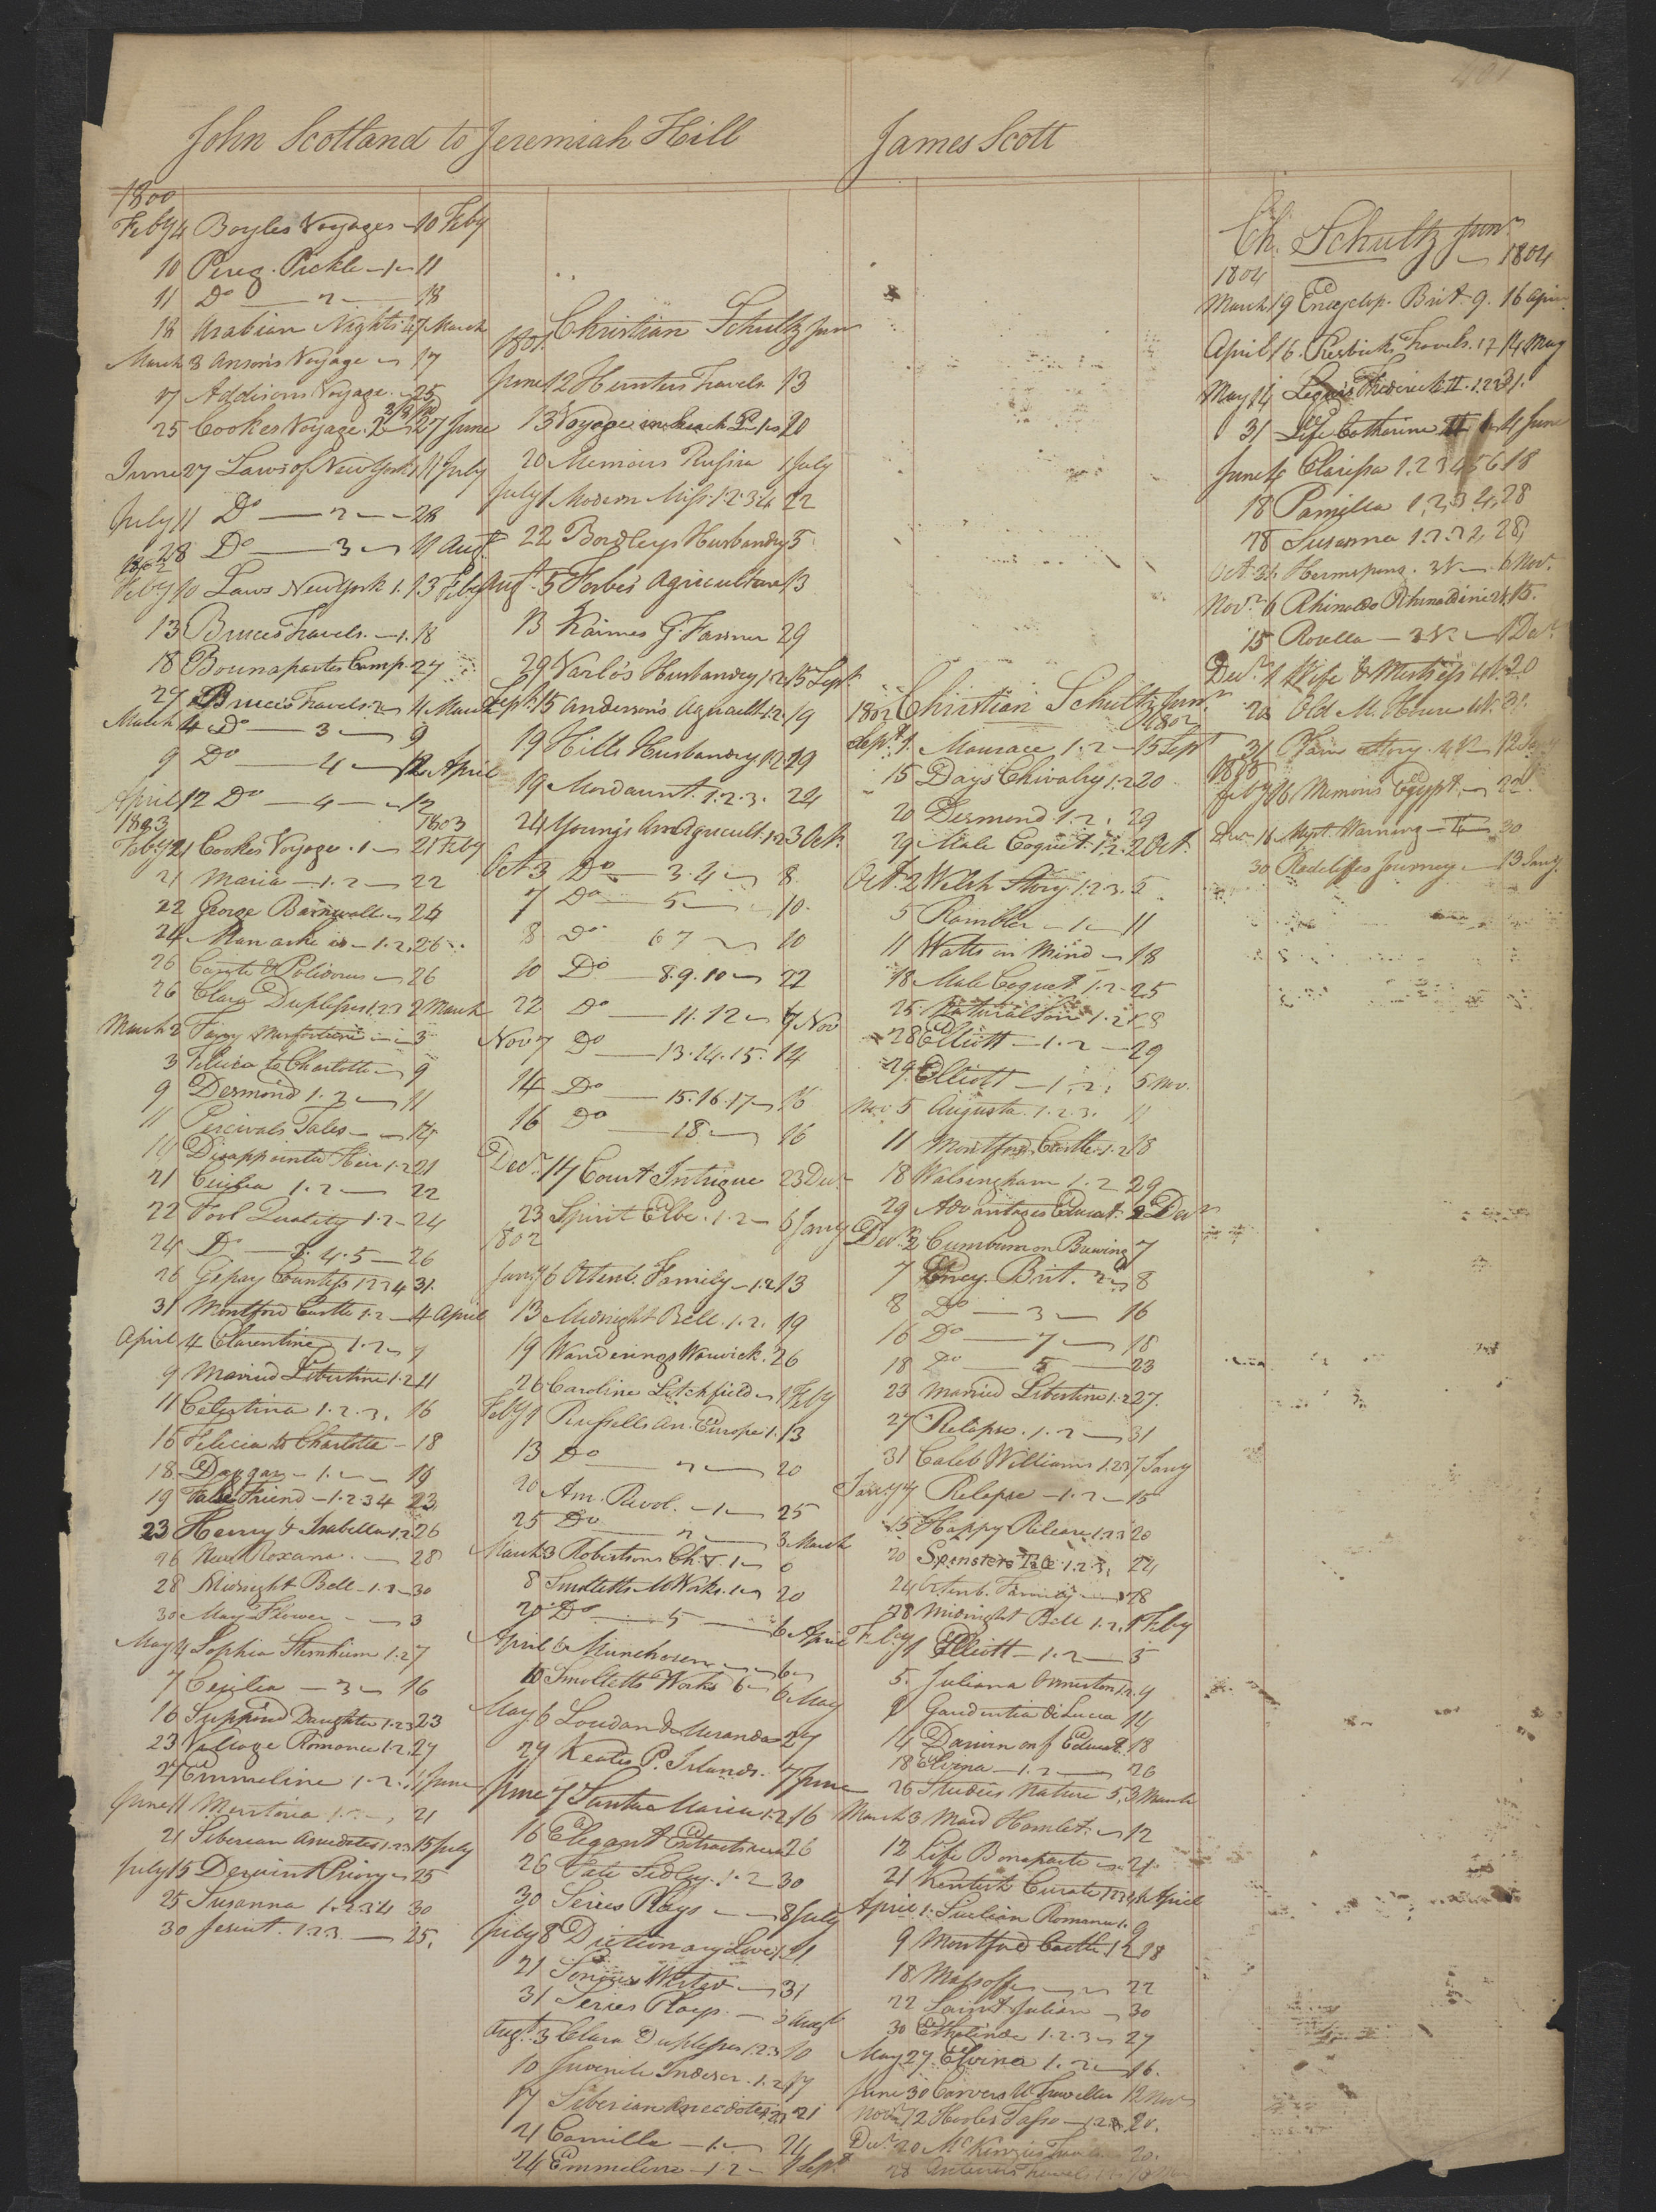 401
John Scotland to Jeremiah Hill
1800
Feby 4 Boyles Voyages - 10 Feby
10 Pereg. Pickle - 1 - 11
11 Do - 2 - 18
18 Arabian Nights 4 7 March
March 8 Ansons Voyage - 17
17 Addisons Voyage - 25
25 Cookes Voyage. 2 - 27 June
June 27 Laws of New York 1 11 July
July 11 Do - 2 - 28
28 Do - 3 - 11 Augt
1802
Feby 10 Laws New York 1. 13 Feby
13 Bruces Travels. - 1. 18
18 Bounaparte Camp. 27
27 Bruces Travels. 2 - 4 March
March 4 Do - 3 - 9
9 Do - 4 - 12 April
April 12 Do - 4 - 12
1803 1803
Feby 21 Cookes Voyage. 1 - 21 Feby
21 Maria - 1. 2 - 22
22 George Barnwell - 24
24 Man as he is - 1. 2. 26
26 Canute & Polidorus - 26
26 Clara Duplessis 1.2.3 2 March
March 2 Fanny Misfortune - 3
3 Felicia to Charlotte - 9
9 Desmond 1. 2 - 11
11 Percivals Tales - 14
14 Disappointed Heir 1.2 21
21 Cecilia 1. 2 - 22
22 Fool Quality 1. 2 - 24
24 Do - 3. 4. 5 - 26
26 Gipsy Countess 1 2 3 4 31.
31 Montford Castle 1. 2 - 4 April
April 4 Clarentine 1. 2 - 9
9 Married Libertine 1. 2 11
11 Celestina 1. 2. 3. 16
16 Felicia to Charlotte - 18
18 - 1. - 19
19 False Friend - 1. 2 3 4 23
23 Henry & Isabella 1.2 26
26 New Roxana. - 28
28 Midnight Bell - 1. 2 - 30
30 May Flower - 3
May 4 Sophia Sternheim 1. 2 7
7 Cecilia - 3 - 16
16 Supposed Daughter 1. 2 3 23
23 Village Romance 1. 2. 27
27 Emmeline 1. 2. 11 June
June 11 21
21 Siberian Anecdotes 1. 2 3 15 July
July 15 Derwent Priory - 25
25 Susanna 1. 2 3 4 30
30 Jesuit. 1. 2 3. - 25.
Christian Schultz Jun
1801.
June 12 Hunters Travels 13
13 Voyage in Search P 1 - 20
20 Memoirs Russia 1 July
July 1 Modern Miss. 1. 2. 3 4 22
22 Bordleys Husbandry 5
Augt. 5 Forbes Agriculture 13
13 Kaimes G. Farmer 29
29 Varlo's Husbandry 1.2. 15 Sept.
Sept. 15 Anderson's Agricult. 1. 2. 19
19 Hills Husbandry 1. 2. 29
19 Mordaunt. 1. 2. 3. 24
24 Young's Ann Agricult. 1. 2 3 Octr.
Oct 3 Do - 3. 4 - 8
7 Do - 5 - 10.
8 Do 6 7 - 10
10 Do - 8. 9. 10 - 22
22 Do - 11. 12 - 7 Nov
Nov 7 Do - 13. 14. 15. 14
14 Do - 15. 16. 17 - 16
16 Do - 18 - 16
Decr. 17 Court Intrigue 23 Decr
23 Spirit Elbe. 1. 2 - 6 Jany
1802
Jany 6 Ortenb. Family - 1. 2 13
13 Midnight Bell. 1. 2. 19
19 Wanderings Warwick. 26
26 Caroline Litchfield - 1 Feby
Feby 1 Russells An. Europe 1. 13
13 Do - 2 - 20
20 Am. Revol. - 1 - 25
25 Do - 2 - 3 March
March 3 Robertsons Ch. V. 1 - 8
8 Smolletts Works. 1 - 20
20 Do - 5 - 6 April
April 6 Munchosen - 6 -
10 Smolletts Works 6 - 6 May
May 6 Loudan & Miranda 27
27 Keates P. Islands. 7 June
June 7 Santa Maria 1. 2 16
16 Elegant Extracts 26
26 Fate Sedley. 1. 2 30
30 Series Plays - 8 July
July 8 Dictionary Love 1. 21
21 31
31 Series Plays. - 3 Augt
Augt. 3 Clara Duplessis 1 2 3 10
10 Juvenile Indiscr. 1. 2 17
17 Siberian Anecdotes 1 2 3 21
21 Camilla - 1. - 24
24 Emmeline - 1. 2 - 1 Sept.
James Scott
1802 Christian Schultz Junr.
1802
Sept. 1. 1. 2 - 15 Sept
15 Days Chivalry 1. 2 20
20 Desmond 1. 2. 29
29 Male Coquet. 1. 2. 2 Oct.
Oct. 2 Welsh Story 1. 2 3. 5
5 Rambler - 1 - 11
11 Watts on Mind - 18
18 Male Coquet. 1. 2 - 25
25 Natural Son 1. 2 28
28 Elliott - 1. 2 - 29
29 Elliott - 1. 2. 5 Nov.
Nov. 5 Augusta. 1. 2. 3. 11
11 Montford Castle. 1. 2 18
18 Walsingham 1. 2 29
29 Advantages Educat. 2 Decr
Decr. 2 Cumbum on Brewing 7
7 Ency. Brit. 2 - 8
8 Do - 3 - 16
16 Do - 7 - 18
18 Do - 5 - 23
23 Married Libertine 1. 2 27.
27 Relapse. 1. 2 - 31
31 Caleb Williams 1. 2 3 7 Jany
Jany 7 Relapse - 1. 2 - 15
15 Happy Release 1. 2 3 20
20 Spinsters Tale 1. 2. 3. 24
24 Ortenb. Family - 28
28 Midnight Bell 1. 2. 1 Feby
Feby 1 Elliott - 1. 2 - 5
5. Juliana Ormeston 1. 2. 9
9 Gaudentia di Lucca 14
14 Darwin on f Educat. 18
18 Elvina - 1. 2 - 26
26 Studies Nature 5. 3 March
March 3 Maid Hamlet. - 12
12 Life Bonaparte - 21.
21 Kentish Curate 1 2 3 4 1 April
April 1. Sicilian Romance 1. 9
9 Montford Castle 1 2 18
18 22
22 Saint Julian - 30
30 Ethelinde 1. 2. 3 - 27
May 27 Elvina 1. 2 - 16.
June 30 Carvers U. Traveller 12 Nov
Novr. 12 Hooles Tasso - 1. 2. 20.
Decr. 20 McKenzies 20.
28
Ch. Schultz Junr.
1804 - 1804
March 19 Encyclop. Brit. 9. 16 April
April 16. Travels. 1 2 14 May
May 14 Frederick II. 1. 2 3 31.
31 Life Catherine II 1 - 4 June
June 4 Clarissa 1. 2 3 4 5 6 18
18 Pamella 1, 2, 3, 4, 28
28 Susanna 1. 2. 3 2, 28,
Oct. 31. Hermsprong. 3V - 6 Nov.
Novr. 6 Rhinaldo Rhinaldini 2V. 15.
15 Rosella - 3V. - 1 Decr.
Decr. 1 Wife & Mistress 4V. 20
20 Old M. House 4V. 31.
31 Plain Story. 4V - 12 Jany
1805
Feby 16 Memoirs Egypt. - 22
Decr 16 Myst. Warning - 4 - 30
30 Radcliffes Journey - 13 Jany.